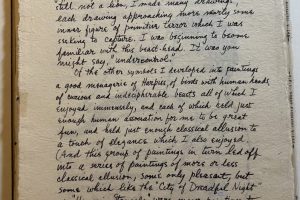 still not a lion, I made many drawings,
each drawing approaching more nearly some
inner figure of primitive terror which I was
seeking to capture. I was beginning to become
familiar with this beast-head. It was, you
might say, "under control."
Of the other symbols I developed into paintings
a good menagerie of Harpies of birds with human heads,
of curious and indecipherable beasts all of which I
enjoyed immensely, and each of which held just
enough human connotation for me to be great
fun, and held just enough classical allusion to
a touch of elegance which I also enjoyed.
(And this group of paintings in turn led off
into a series of paintings of more or less
classical allusion, some only pleasant, but
some which like the "City of Dreadful Night"
were more